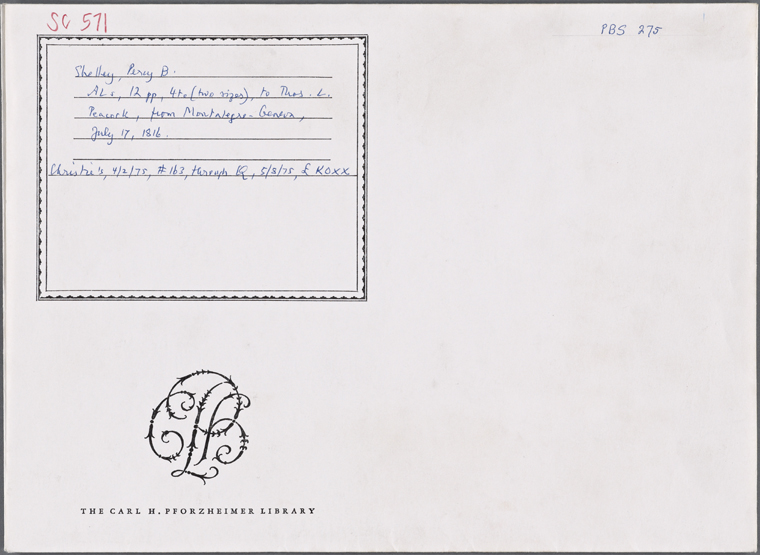 SC 571
PBS 275
Shelley, Percy B.
ALs, 12 pp, 4to (two sizes), to Thos. L.
Peacock, from Montalegre-Geneva,
July 17, 1816.
Christie's, 4/2/75, #163, through BQ, 5/8/75, £ KOXX
THE CARL H. PFORZHEIMER LIBRARY